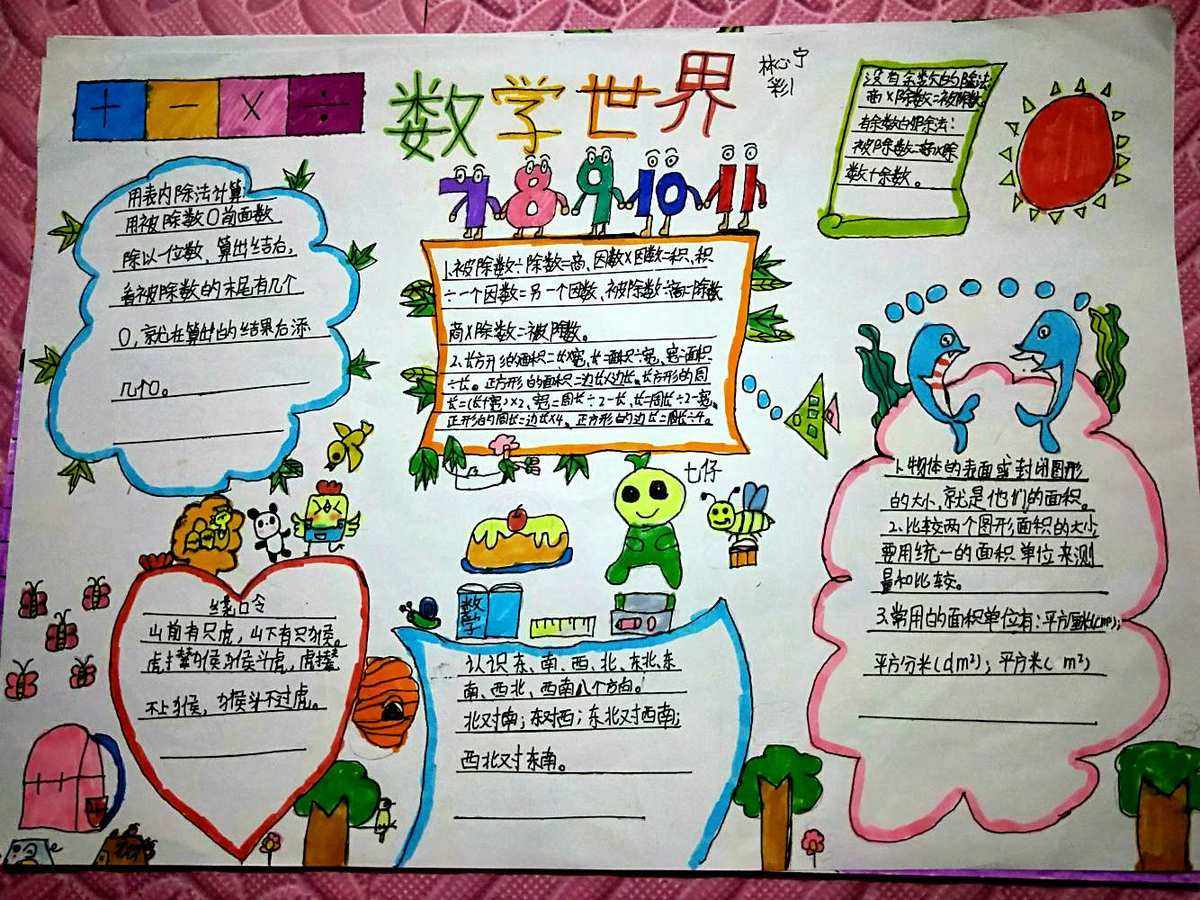 + - × ÷
数学世界
林心宁
彩1
7 8 9 10 11
没有余数的除法
商×除数=被除数
有余数的除法:
被除数=商×除
数+余数。
用表内除法计算:
用被除数0前面数
除以一位数,算出结后,
看被除数的末尾有几个
0,就在算出的结果后添
几个0。
1.被除数÷除数=商、因数×因数=积、积
÷一个因数=另一个因数、被除数÷商=除数
商×除数=被除数。
2.长方形的面积=长×宽、长=面积÷宽、宽=面积
÷长。正方形的面积=边长×边长。长方形的周
长=(长+宽)×2、宽=周长÷2-长、长=周长÷2-宽。
正形的周长=边长×4、正方形的边长=周长÷4。
七仔
1.物体的表面或封闭图形
的大小,就是他们的面积。
2.比较两个图形面积的大小,
要用统一的面积单位来测
量和比较。
3.常用的面积单位有:平方厘米(cm²);
平方分米(dm²);平方米(m²)
绕口令
山前有只虎,山下有只猴。
虎撵猴猴斗虎,虎撵
不上猴,猴斗不过虎。
数学
认识东、南、西、北、东北、东
南、西北、西南八个方向。
北对南;东对西;东北对西南;
西北对东南。